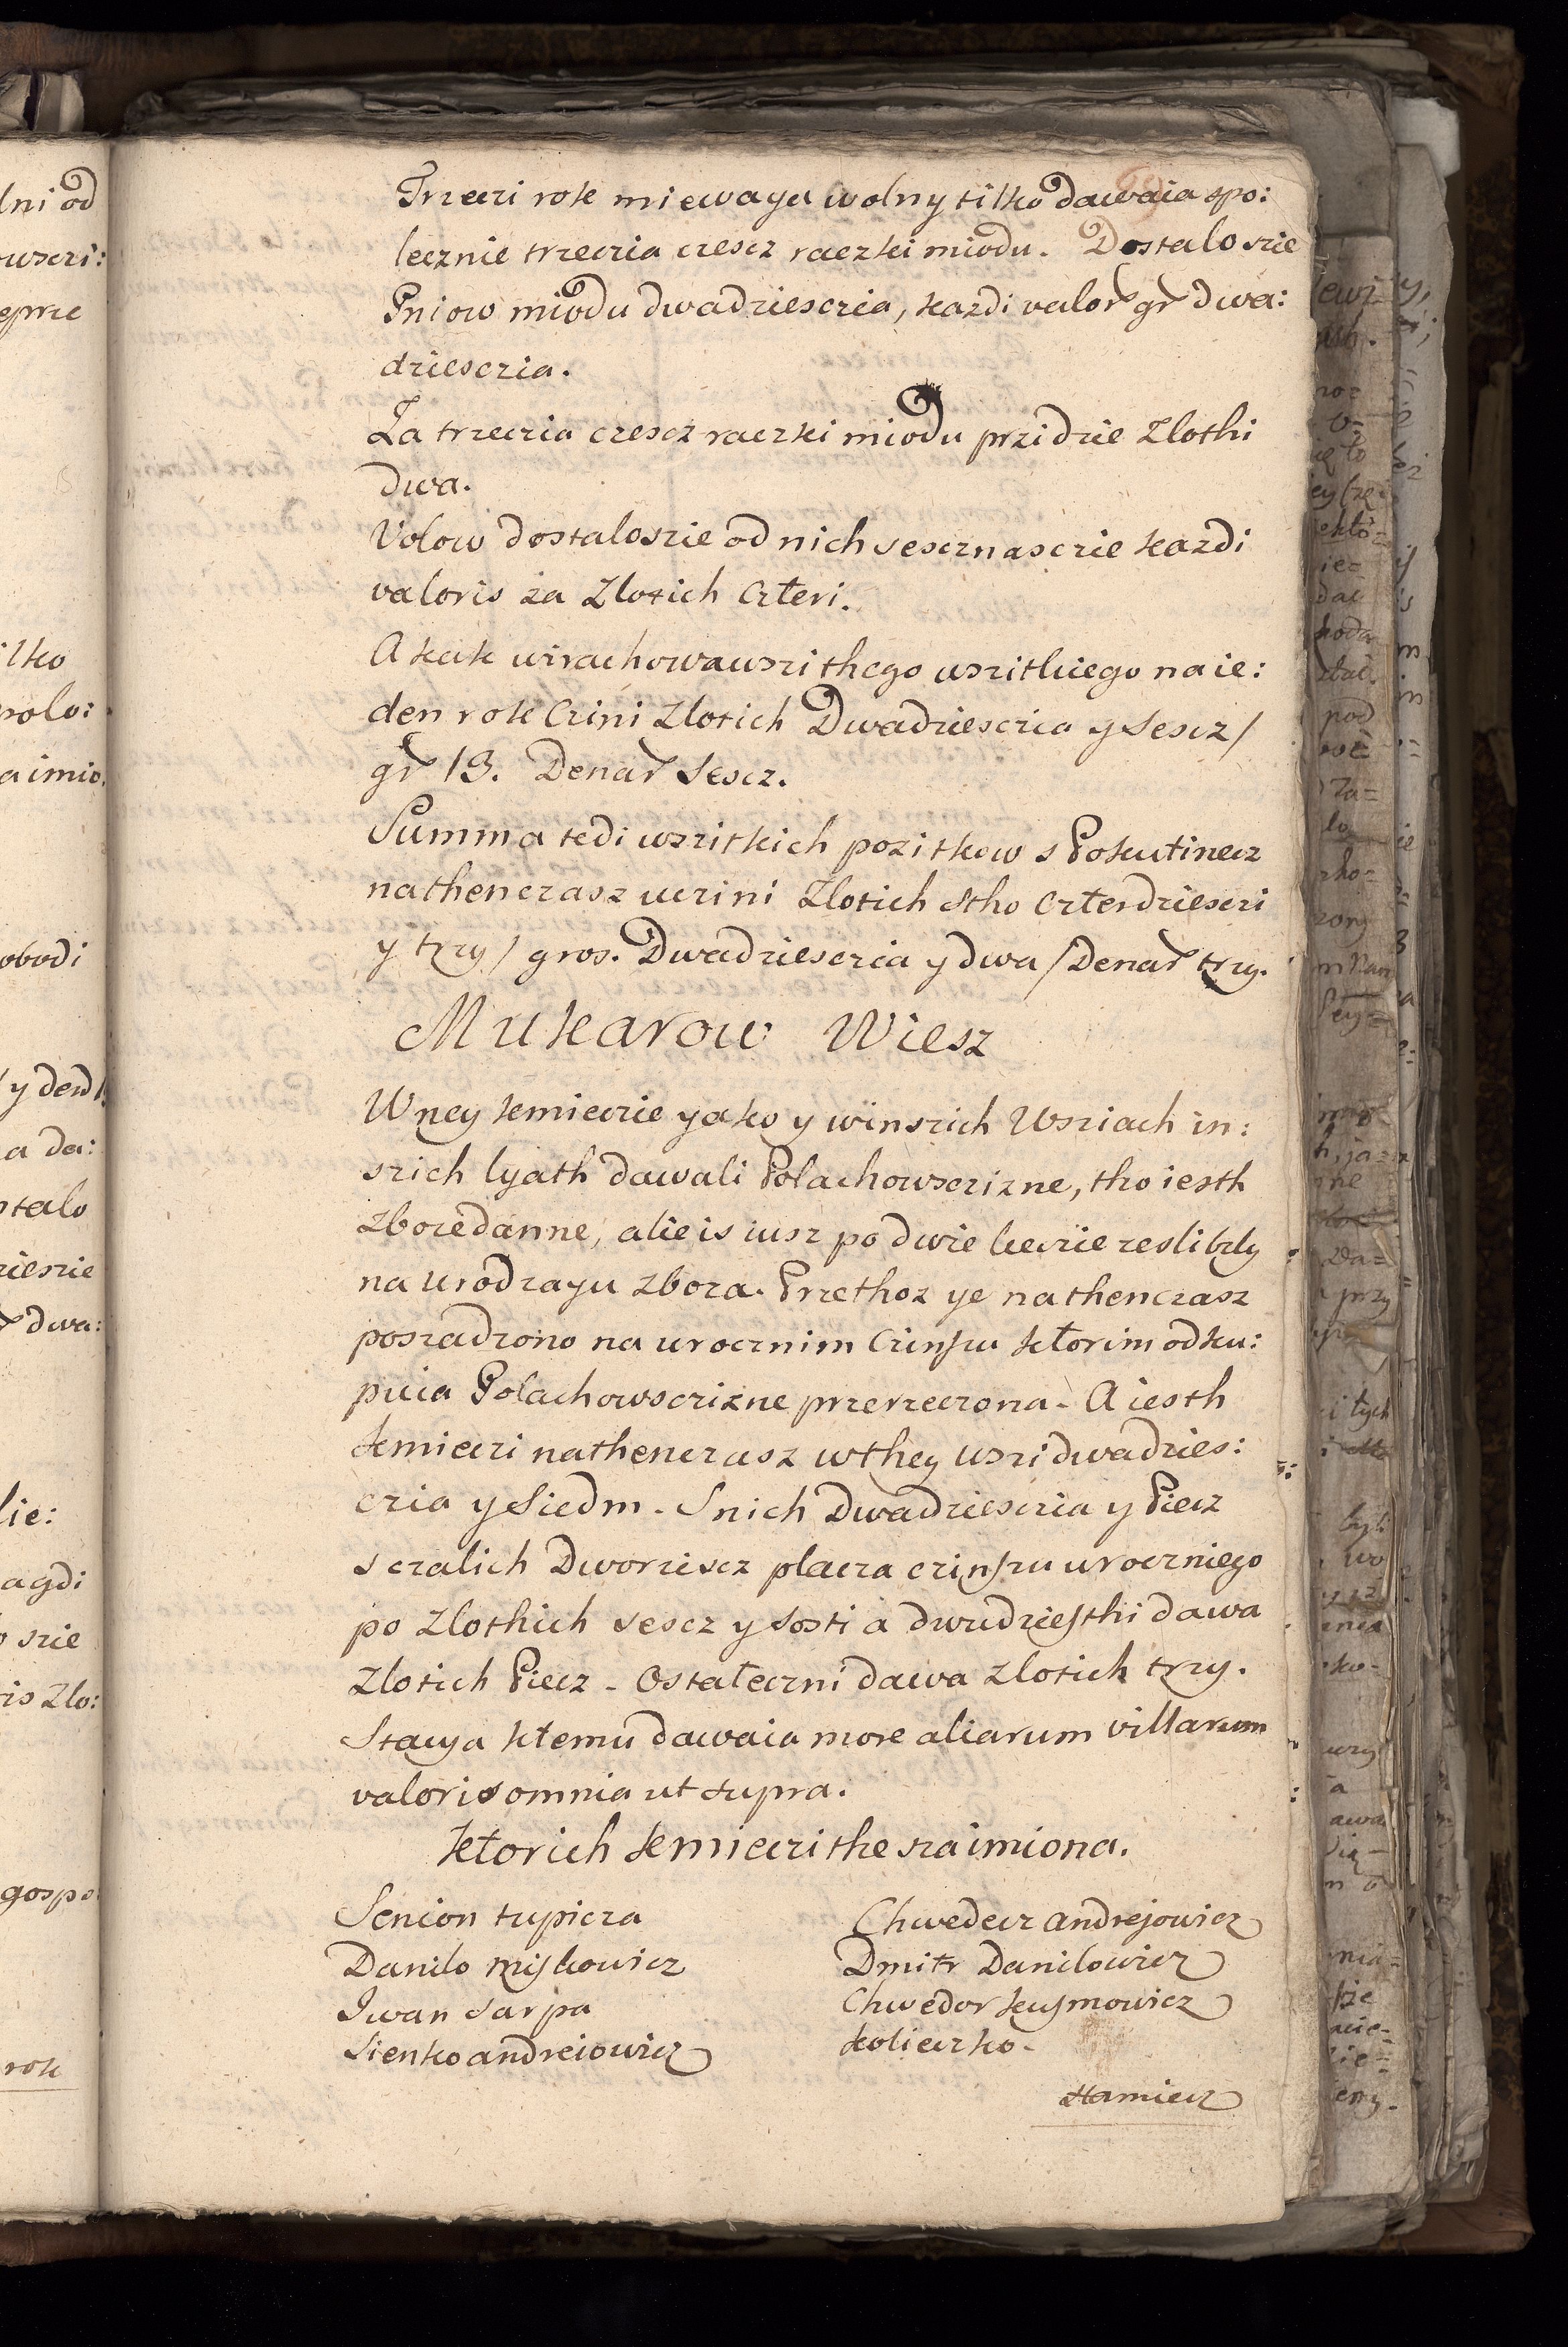 Trzeczi rok miewaya wolny tilko dawaia spo:
lecznie trzeczia czescz raczki miodu. Dostalo szie
Pniow miodu dwadziesczia, kazdi valor gr dwa:
dziesczia.
Za trzeczia czescz raczki miodu przidzie Zlothi
dwa.
Volow dostaloszie od nich sescznasczie kazdi
valoris za Zlotich czteri.
A kak wirachowawszi thego wszitkiego na ie:
den rok Czini Zlotich Dwadziesczia y Sescz /
gr 13. Denar Sescz.
Summa tedi wszitkich pozitkow s Pokutinecz
nathenczasz uczini Zlotich Stho czterdziesczi
y trzy / gros. Dwadziesczia y dwa / Denar trzy.
Mukarow Wiesz
W ney kmieczie yako y w inszich Wsziach in:
szich lyath dawali Polachowsczizne, tho iesth
Zboze danne, alie is iusz po dwie lieczie zesli byly
na urodzayu zboza. Przethoz ye nathenczasz
poszadzono na urocznim Czinszu ktorim odku:
puia Polachowsczizne przerzeczona. A iesth
kmieczi nathenczasz w they wszi dwadzies:
czia y Siedm. S nich Dwadziesczia y Piecz
s czalich Dworziscz placza czinszu uroczniego
po Zlothich sescz y sosti a dwudziesthi dawa
Zlotich Piecz. Ostateczni dawa Zlotich trzy.
Stacya ktemu dawaia more aliarum villarum
valoris omnia ut supra.
Ktorich kmieczi the sza imiona.
Senion tupicza
Danilo miskowicz
Iwan sarpa
Sienko andreiowicz
Chwedecz andrejowicz
Dmitr Danilowicz
Chwedor kusmowicz
kolieczko.
Hamiecz